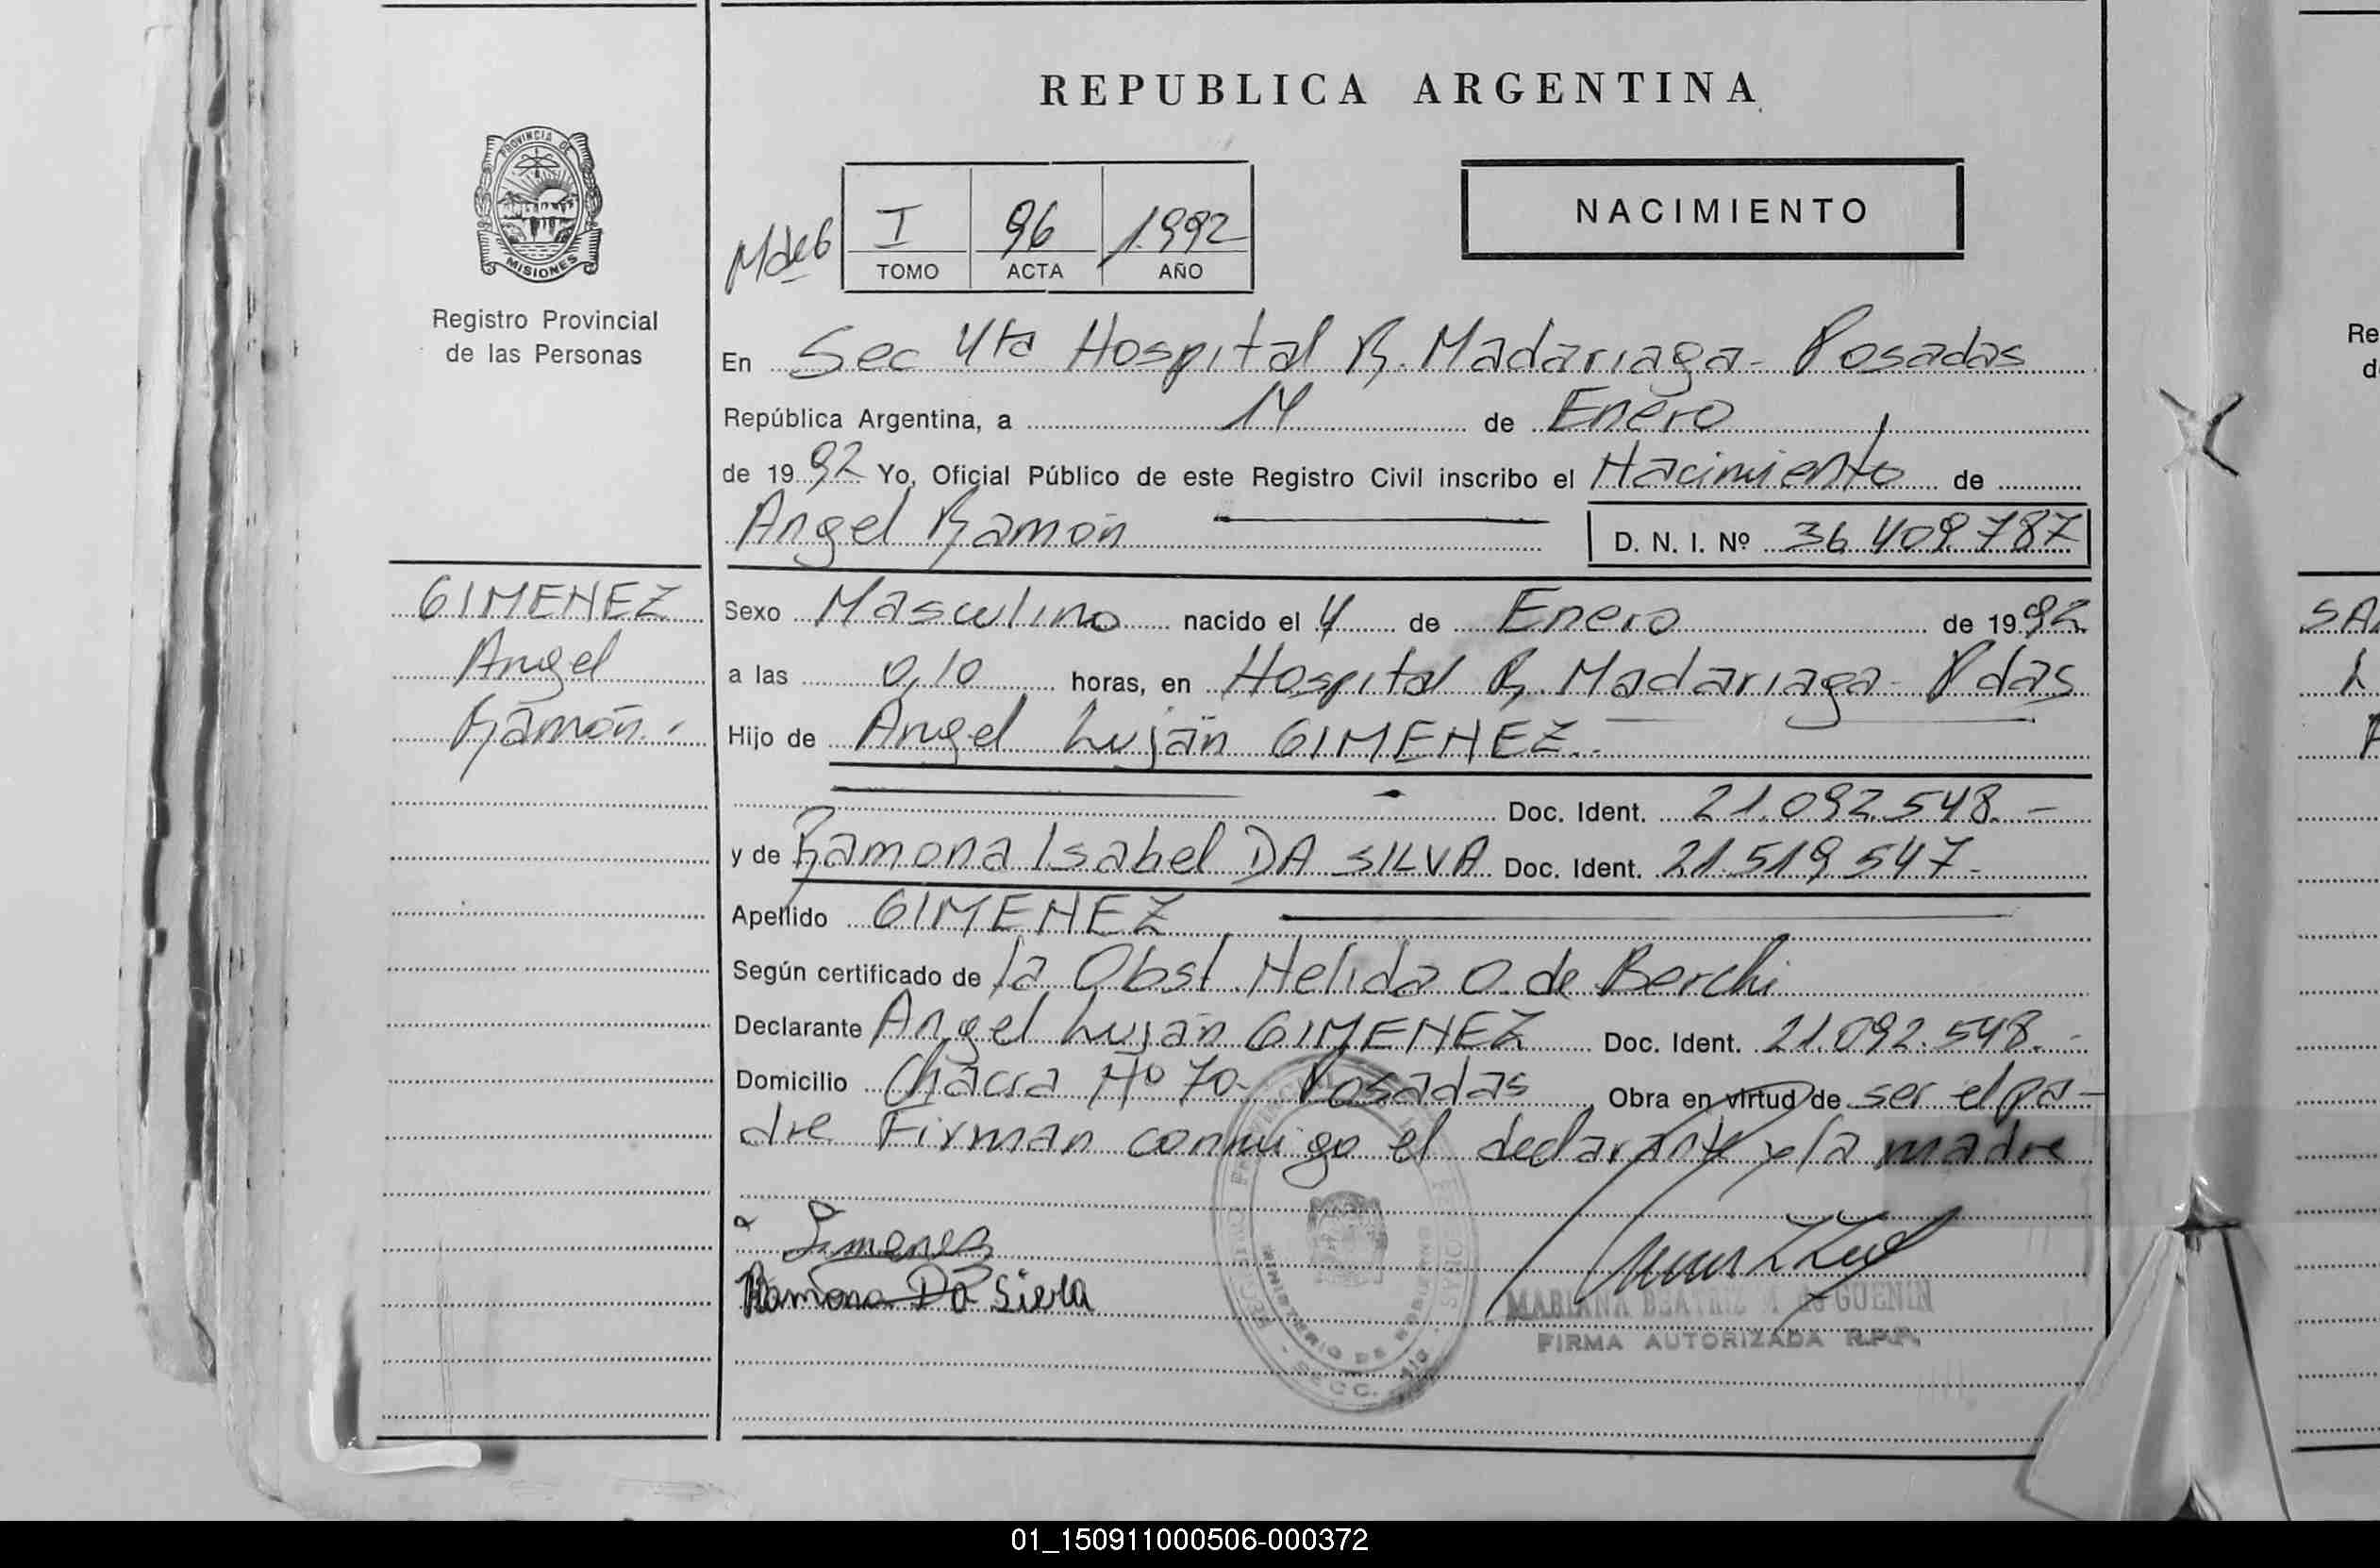 REPUBLICA ARGENTINA
PROVINCIA DE
MISIONES
Registro Provincial
de las Personas
I 96 1992
TOMO ACTA AÑO
NACIMIENTO
En Sec 4ta Hospital R. Madariaga - Posadas
República Argentina, a 14 de Enero
de 1992 Yo, Oficial Público de este Registro Civil inscribo el Nacimiento de
Angel Ramón D. N. I. Nº 36.409.787
GIMENEZ
Angel
Ramón.
Sexo Masculino nacido el 4 de Enero de 1992
a las 0,10 horas, en Hospital R. Madariaga - Pdas
Hijo de Angel Luján GIMENEZ.
Doc. Ident. 21.092.548.-
y de Ramona Isabel DA SILVA Doc. Ident. 21.519.547.-
Apellido GIMENEZ
Según certificado de la Obst. Nelida O. de Berchi
Declarante Angel Luján GIMENEZ Doc. Ident. 21.092.548.-
Domicilio Chacra Nº 70- Posadas Obra en virtud de ser el pa-
dre Firman conmigo el declarante y la madre
Jimenez
Ramona Da Silva
MARIANA BEATRIZ GUENIN
FIRMA AUTORIZADA R.P.P.
MINISTERIO DE GOBIERNO
SECC.
Re
SA
01_150911000506-000372